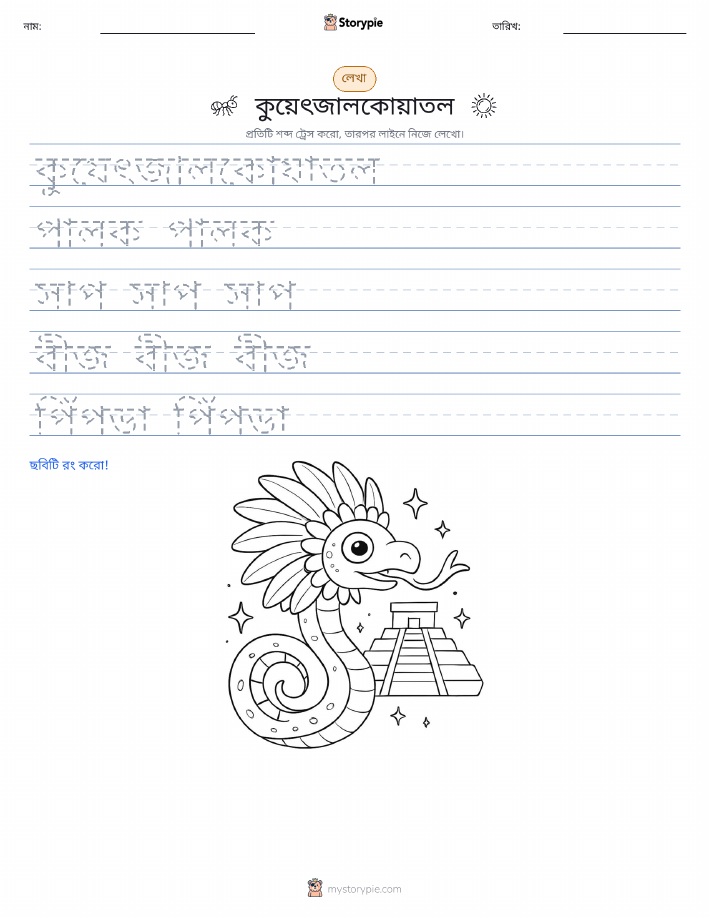 নাম:
Storypie
তারিখ:
লেখা
কুয়েৎজালকোয়াতল
প্রতিটি শব্দ ট্রেস করো, তারপর লাইনে নিজে লেখো।
কুয়েৎজালকোয়াতল
পালক পালক
সাপ সাপ সাপ
বীজ বীজ বীজ
পিঁপড়া পিঁপড়া
ছবিটি রং করো!
mystorypie.com